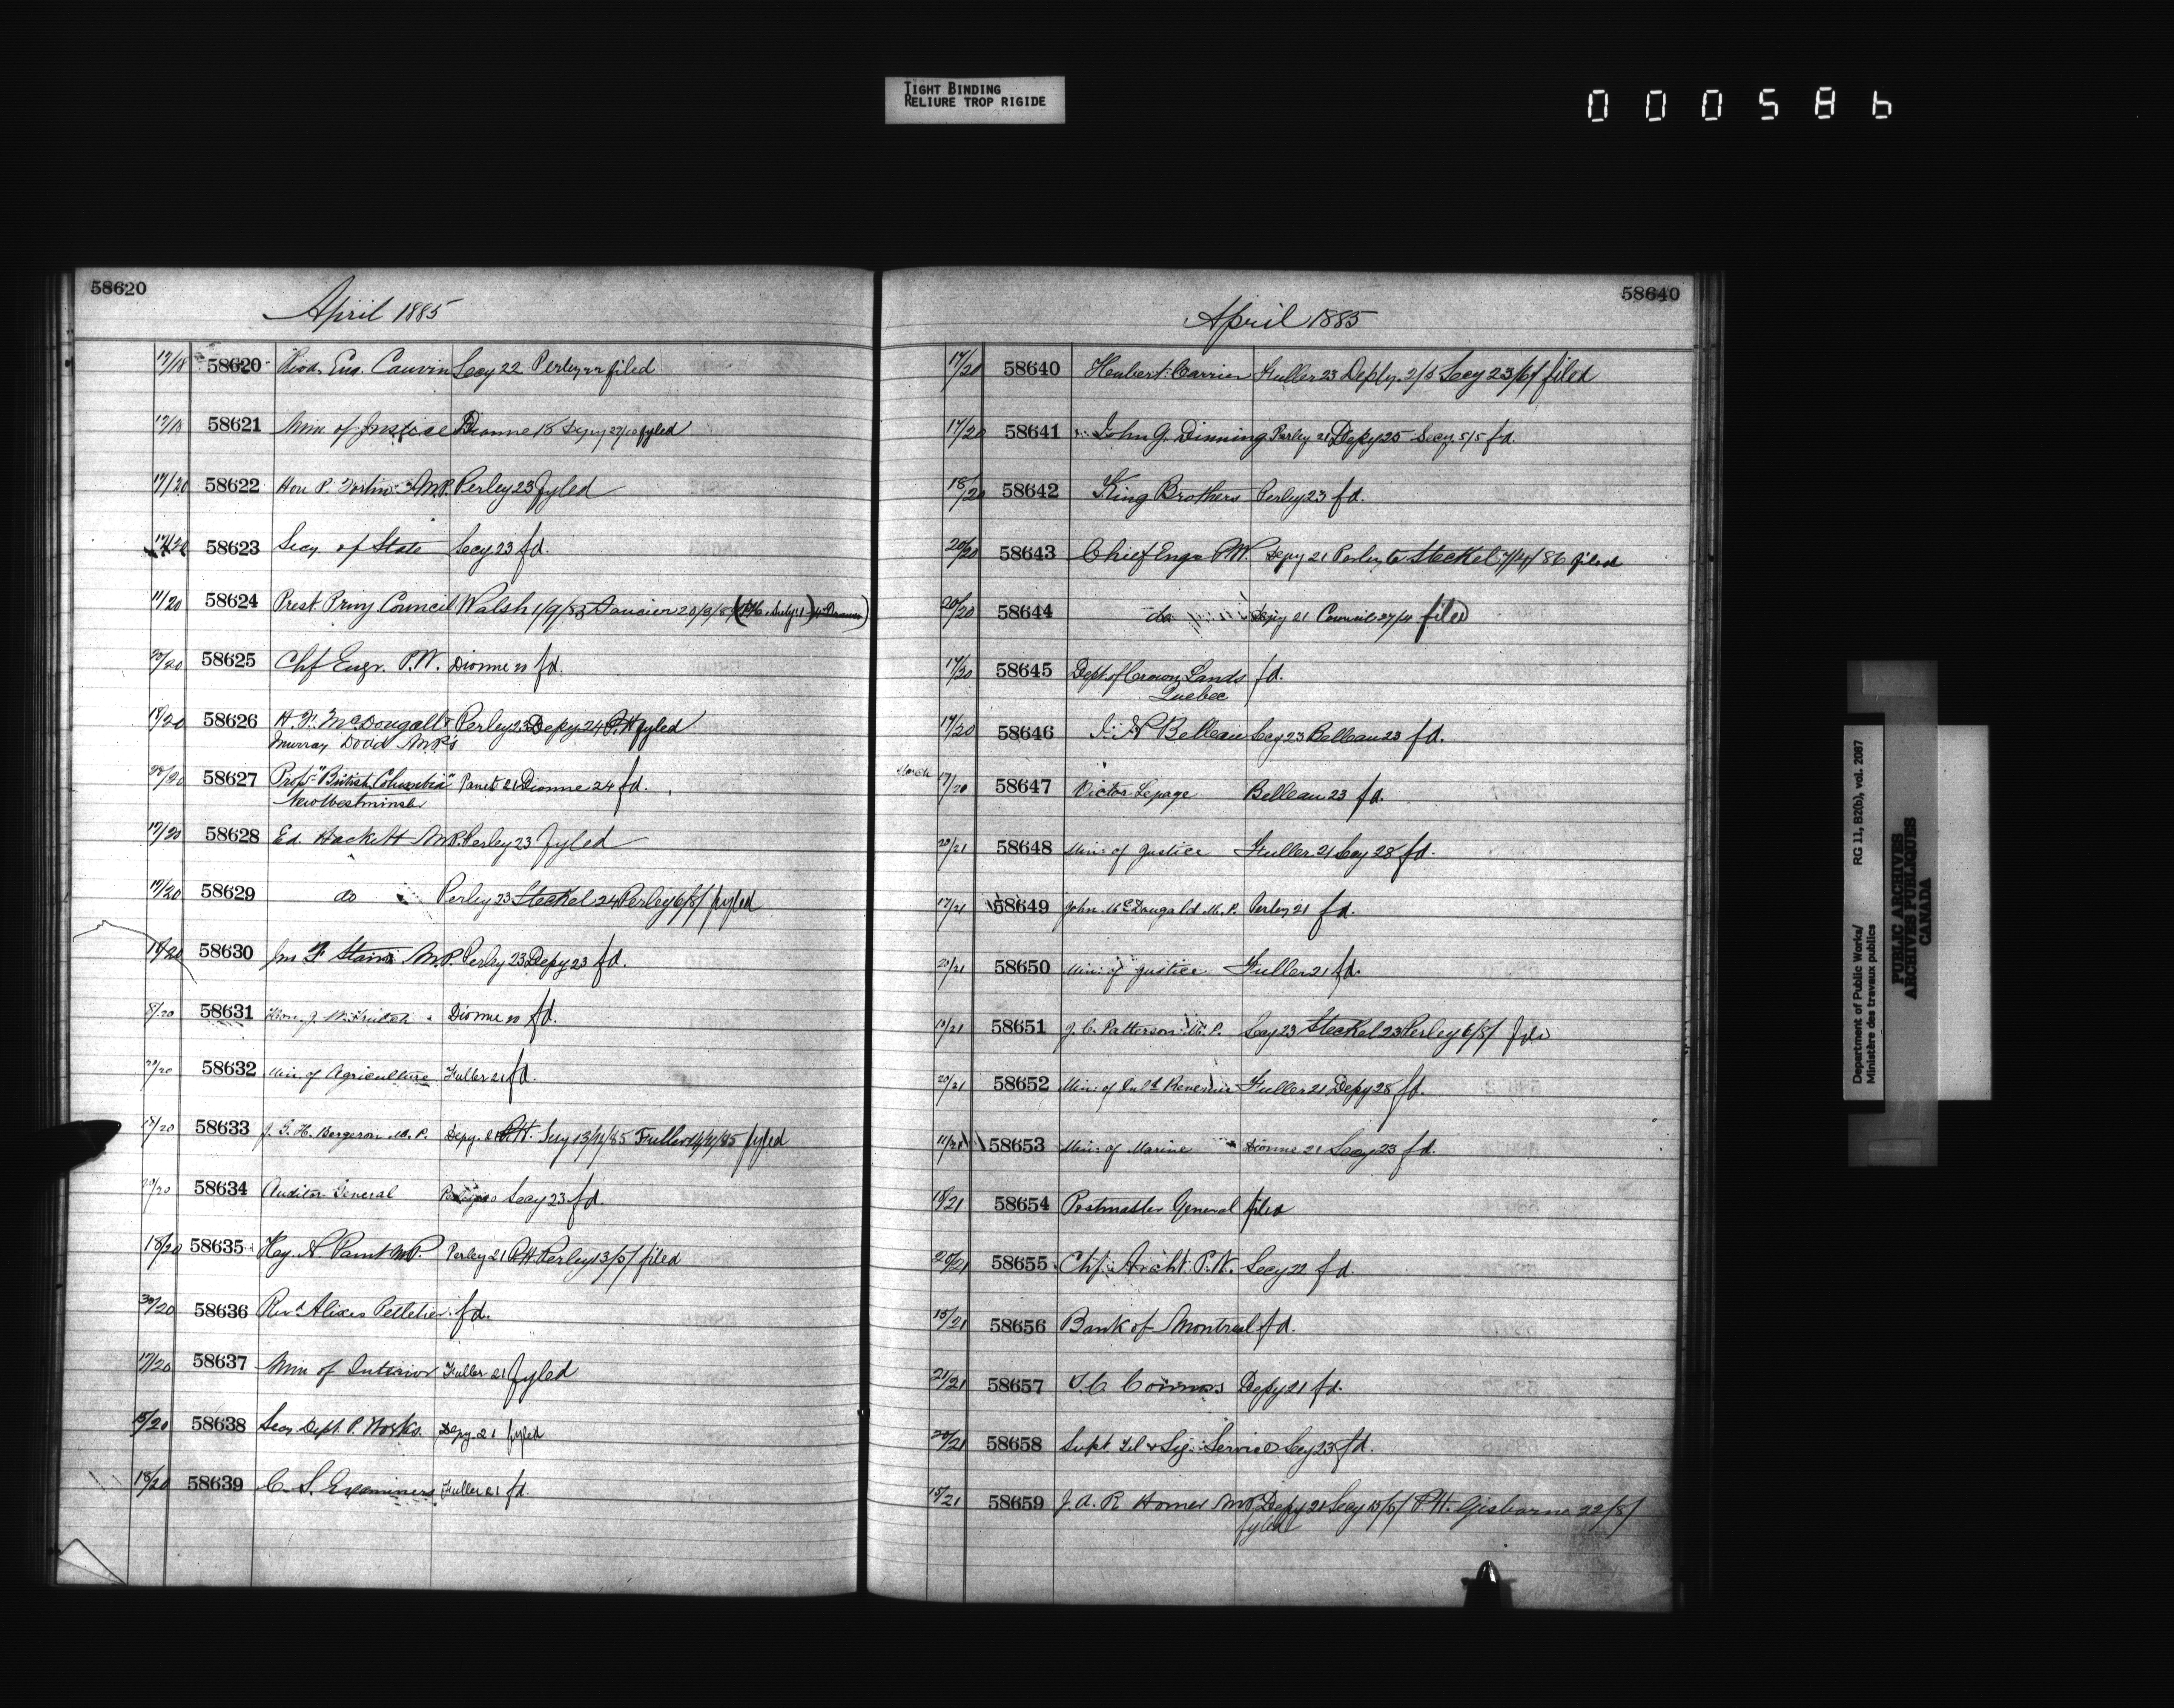 TIGHT BINDING
RELIURE TROP RIGIDE
000586
58620
April 1885
17/18 58620 Eug. Cauvin Secy 22 Perley 22 filed
17/18 58621 Min of Justice Dionne 18 Depy fyled
17/20 58622 Hon P. Fortin M.P. Perley 23 fyled
17/20 58623 Secy of State Secy 23 fd.
11/20 58624 Prest Privy Council Walsh Saucier
20/20 58625 Chf Engr. P.W. Dionne 22 fd.
18/20 58626 H. F. McDougall & Perley 23 Depy 24 P.H fyled
Murray Dodd M.P's
20/20 58627 Props "British Columbia" Panet 21 Dionne 24 fd.
New Westminster
17/20 58628 Ed. Hackett M.P. Perley 23 fyled
17/20 58629 do Perley 23 Steckel 24 Perley 6/8/ fyled
18/20 58630 Jno F Stairs M.P. Perley 23 Depy 23 fd.
8/20 58631 Hon. J. Dionne 22 fd.
20/20 58632 Min of Agriculture Fuller 21 fd.
18/20 58633 J. G. H. Bergeron M.P. Depy. 21 P.H. Secy 13/4/85 Fuller 14/4/85 fyled
20/20 58634 Auditor General Secy 23 fd.
18/20 58635 Hey. N. Paint M.P. Perley 21 P.H. Perley 13/5/ filed
58636 Revd Alixes Pelletier fd.
17/20 58637 Min of Interior Fuller 21 fyled
58638 Secy Dept. P. Works. Depy. 21 fyled
18/20 58639 C. S. Examiners Fuller 21 fd.
58640
April 1885
17/20 58640 Hubert Carrier Fuller 23 Depy. 2/5 Secy 23/6/ filed
17/20 58641 John G. Dinning Perley 21 Depy 25 Secy 5/5 fd.
18/20 58642 King Brothers Perley 23 fd.
20/20 58643 Chief Engr P.W. Depy 21 Perley to Steckel 7/4/86 filed
20/20 58644 do Depy 21 Council 27/4 filed
17/20 58645 Dept of Crown Lands fd.
Quebec
17/20 58646 I. N Belleau Secy 23 Belleau 23 fd.
March 17/20 58647 Victor Lepage Belleau 23 fd.
20/21 58648 Min: of Justice Fuller 21 Secy 28 fd.
17/21 58649 John McDougald M.P. Perley 21 fd.
20/21 58650 Min: of Justice Fuller 21 fd.
58651 J. C. Patterson M.P. Secy 23 Steckel 23 Perley 6/8/ fd
20/21 58652 Min: of Inld Revenue Fuller 21 Depy 28 fd.
11/21 58653 Min: of Marine Dionne 21 Secy 23 fd.
18/21 58654 Postmaster General filed
20/21 58655 Chf. Archt. P.W. Secy 22 fd
15/21 58656 Bank of Montreal fd.
21/21 58657 Connors Depy 21 fd.
20/21 58658 Supt. Tel & Sig. Service Secy 23 fd.
15/21 58659 J. A. R Homer M.P. Depy 21 Secy P.H. Gisborne 22/8/
fyled
Department of Public Works/ RG 11, B2(b), vol. 2087
Ministère des travaux publics
PUBLIC ARCHIVES
ARCHIVES PUBLIQUES
CANADA